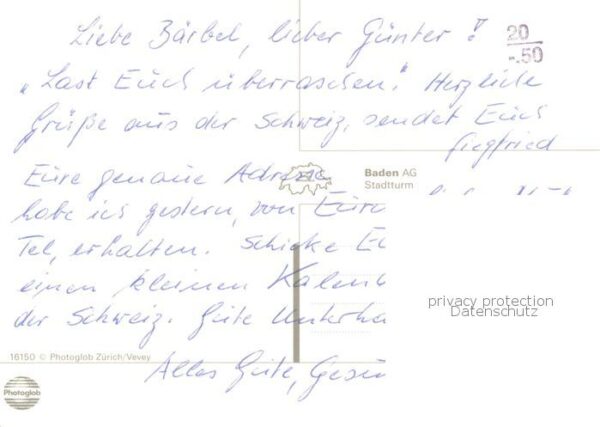 Liebe Bärbel, lieber Günter!
20
-.50
"Last Euch überraschen." Herzliche
Grüße aus der Schweiz, sendet Euch
Siegfried
Baden AG
Stadtturm
Eure genaue Adresse
habe ich gestern, von Eure
Tel, erhalten. Schicke
einen kleinen
der Schweiz. Gute
Alles Gute,
privacy protection
Datenschutz
16150 © Photoglob Zürich/Vevey
Photoglob